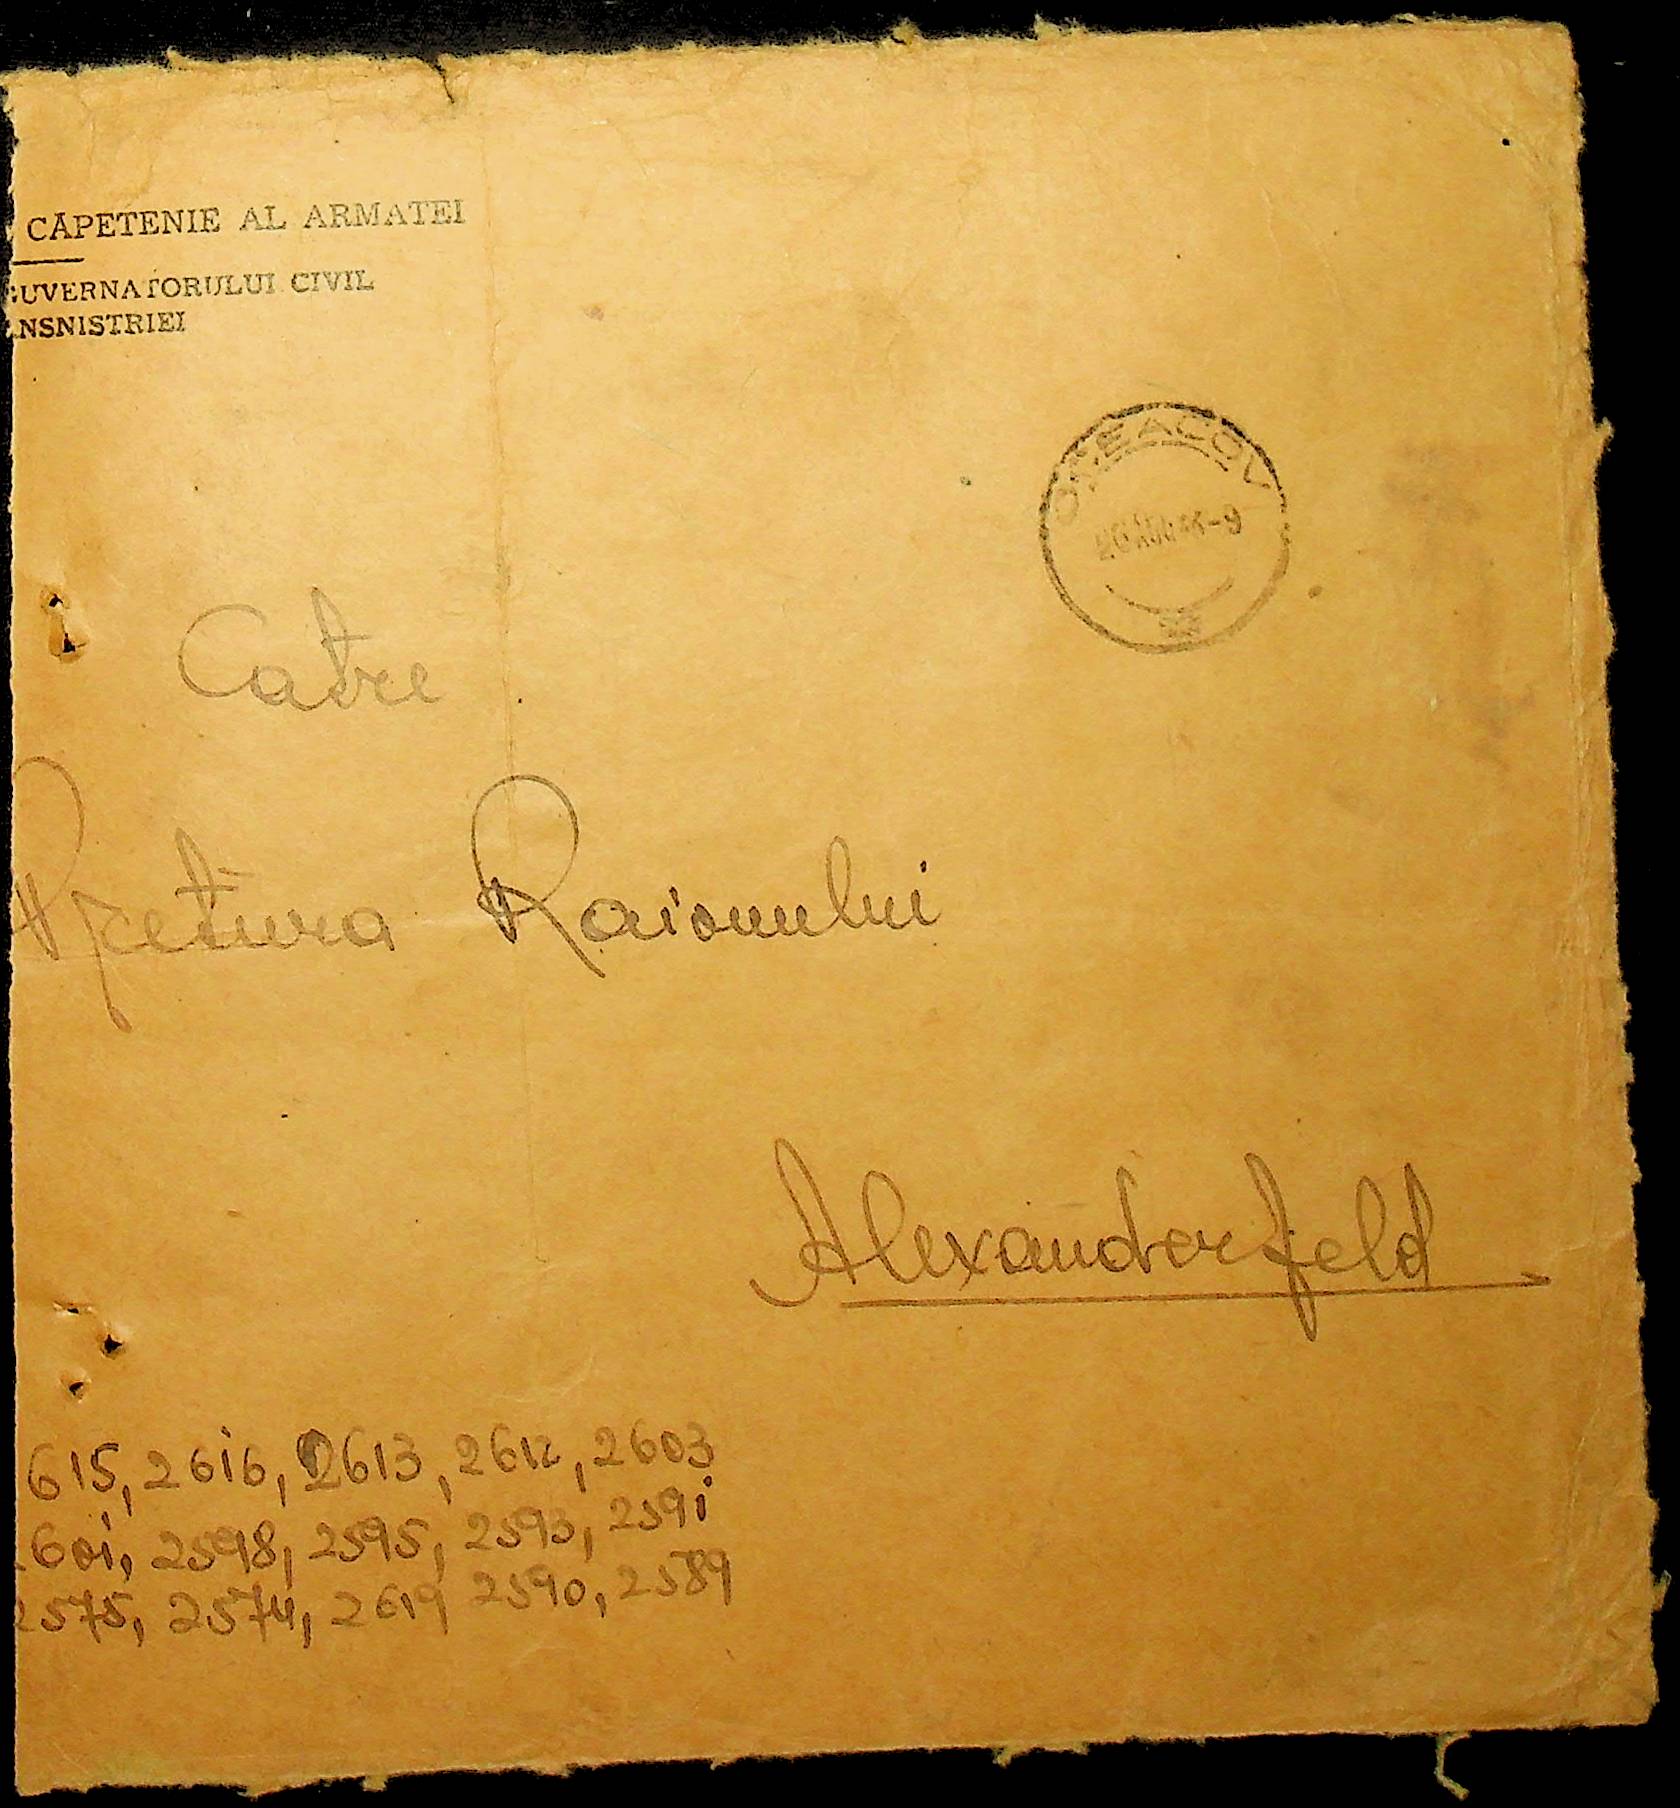 CAPETENIE AL ARMATEI
GUVERNATORULUI CIVIL
NSNISTRIEI
OCEACOV
Catre
Pretura Raionului
Alexanderfeld
615, 2616, 2613, 2612, 2603
601, 2598, 2595, 2593, 2591
2575, 2574, 2619 2590, 2589